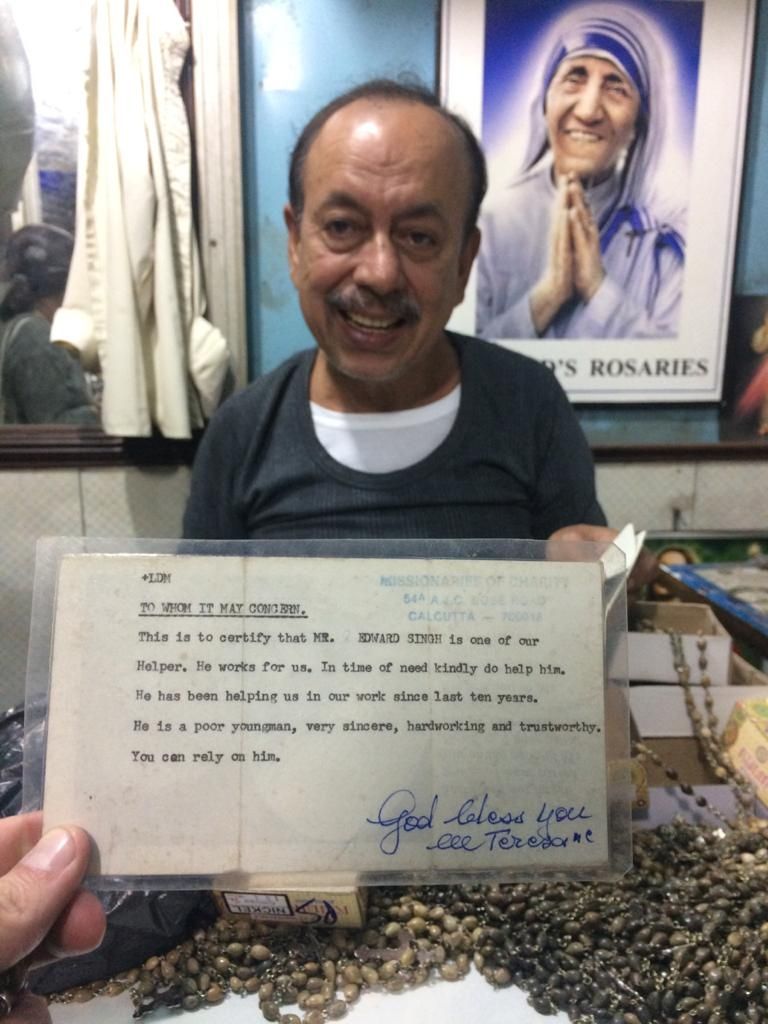 'S ROSARIES
+LDM
MISSIONARIES OF CHARITY
54A A.J.C. BOSE ROAD
CALCUTTA — 700016
TO WHOM IT MAY CONCERN.
This is to certify that MR. EDWARD SINGH is one of our
Helper. He works for us. In time of need kindly do help him.
He has been helping us in our work since last ten years.
He is a poor youngman, very sincere, hardworking and trustworthy.
You can rely on him.
God bless you
M Teresa MC
NICKEL